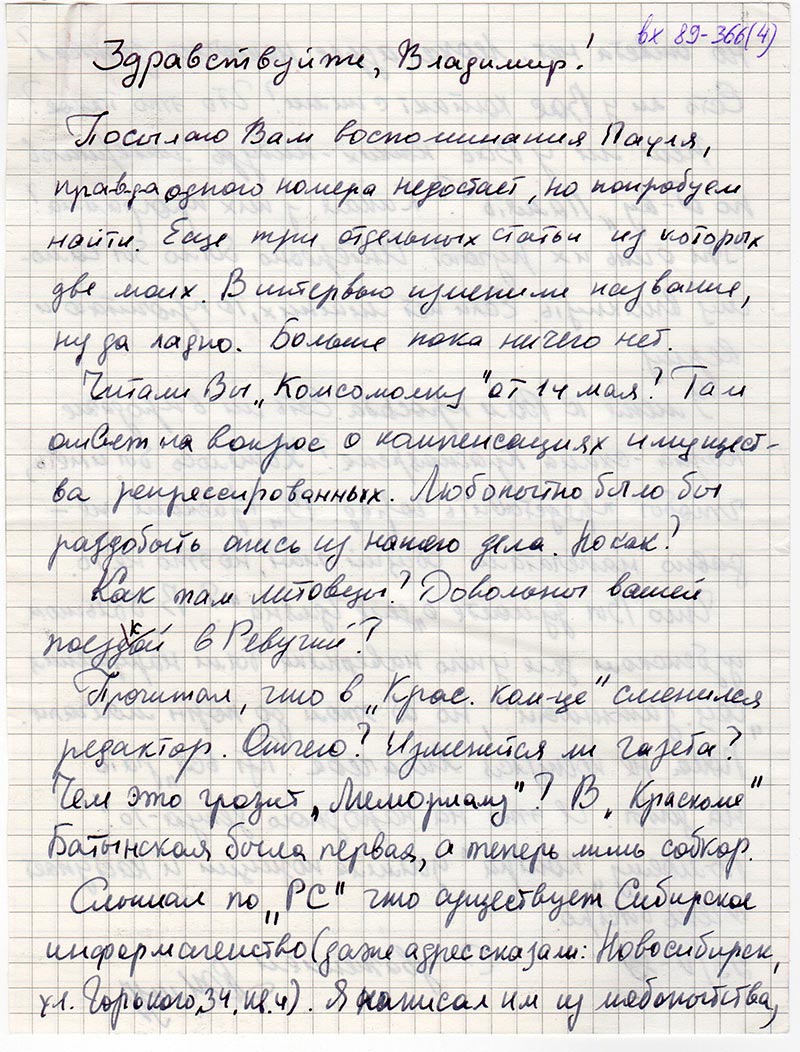 вх 89-366(4)
Здравствуйте, Владимир!
Посылаю Вам воспоминания Пауля,
правда одного номера недостает, но попробуем
найти. Еще три отдельных статьи из которых
две моих. В интервью изменили название,
ну да ладно. Больше пока ничего нет.
Читали Вы „Комсомолку" от 14 мая? Там
ответ на вопрос о компенсациях имущест-
ва репрессированных. Любопытно было бы
раздобыть опись из нашего дела. Но как?
Как там литовцы? Довольны вашей
поездкой в Ревучий?
Прочитал, что в „Крас. ком-це" сменился
редактор. Отчего? Изменится ли газета?
Чем это грозит „Мемориалу"? В „Краскоме"
Батынская была первая, а теперь лишь собкор.
Слышал по „РС" что существует Сибирское
информагенство (даже адрес сказали: Новосибирск,
ул. Горького, 34, кв. 4). Я написал им из любопытства,